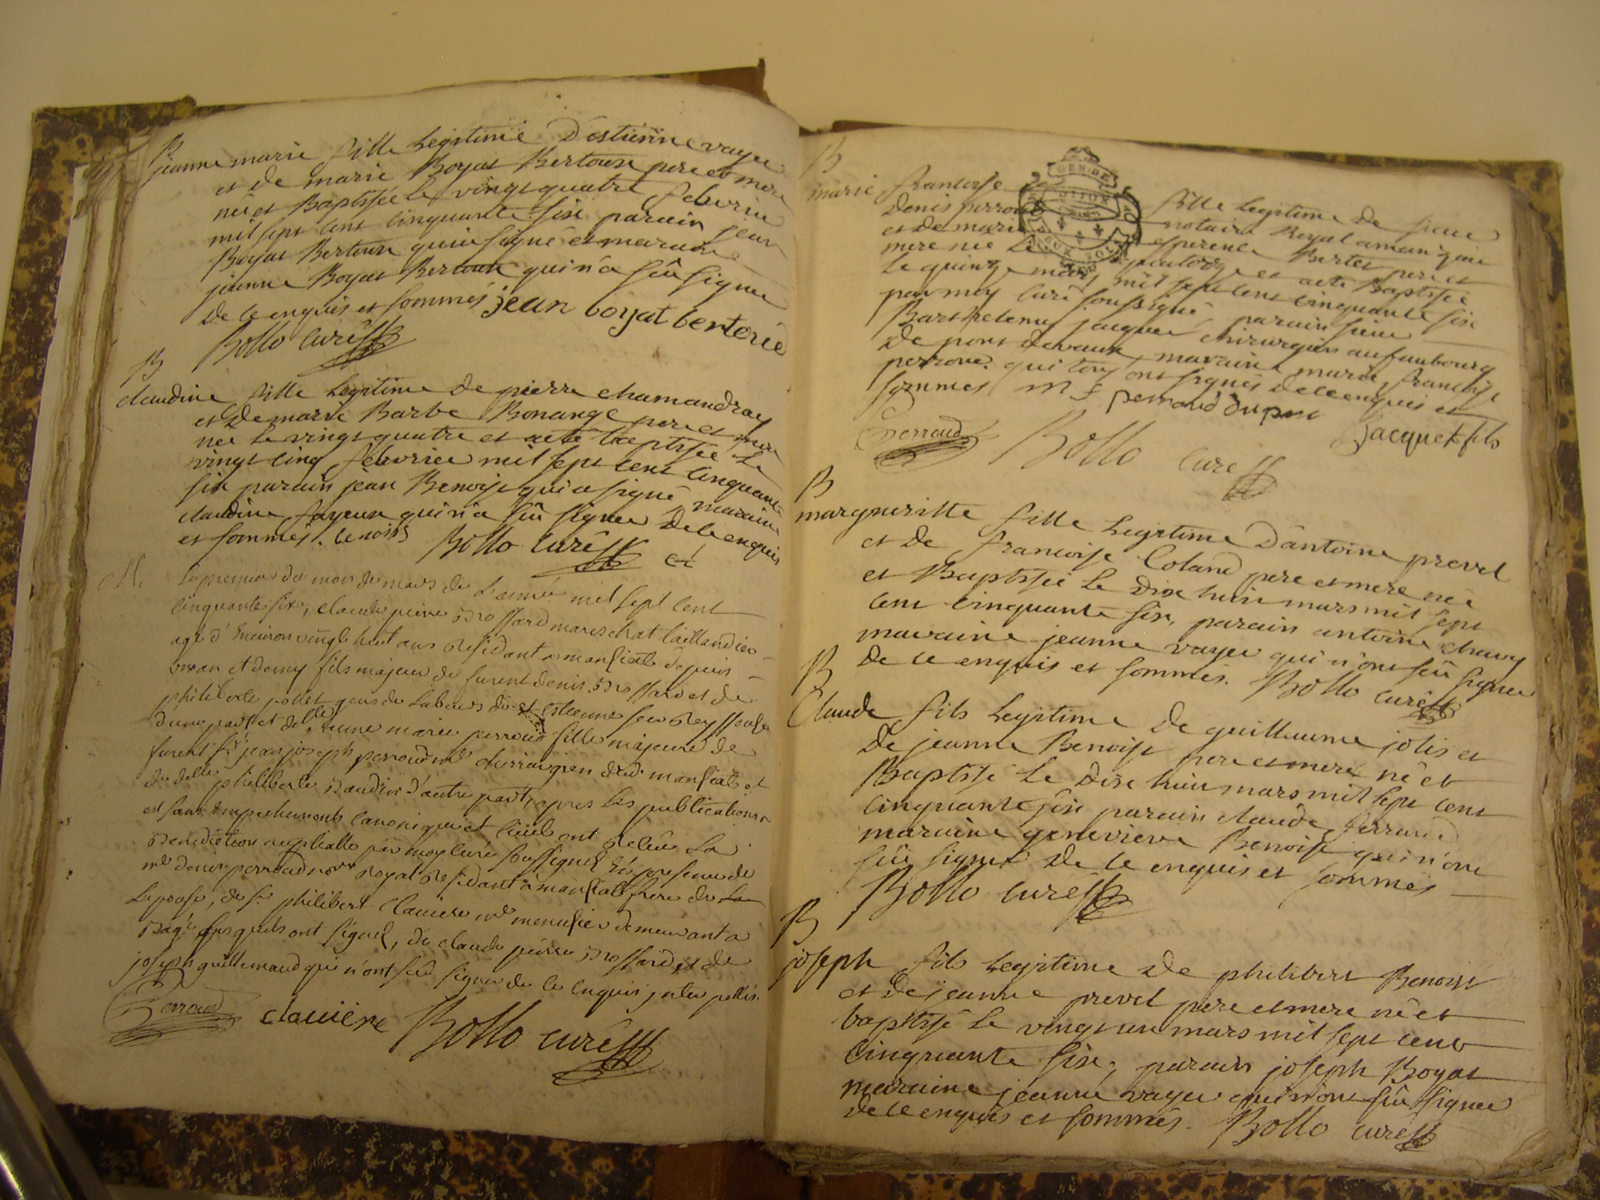 B
jeanne marie fille Legitime D'estienne vayer
et de marie Boyat Bertoux pere et mere
née et Baptisée Le vingt quatre febvrier
mil sept cent cinquante six parain jean
Boyat Bertoux qui a signé et maraine
jeanne Boyat Bertoux qui n'a sçû signer
de ce enquis et sommés jean boyat
Bollo curé
B
claudine fille Legitime de pierre chamandray
et de marie Barbe Bonange pere et mere
née le vingt quatre et a eté baptisée Le
vingt cinq feuvrier mil sept cent cinquante
six parain jean Benoist qui a signé maraine
claudine fayeux qui n'a sçû signer de ce enquis
et sommés. benoist Bollo curé
M.
Le premier du mois de mars de L'année mil sept cent
cinquante six, claude pierre Brossard mareschal taillandier
agé d'Environ vingt huit ans residant a depuis
un an et demy fils majeur de furent denis Brossard et de
philiberte pollet gens de Labeurs de st Estienne
d'une part et delle jeanne marie perroud fille majeure de
furent sr jean joseph perroud chirurgien dud. et
de delle philiberte Baudin d'autre part, apres les publications
et sans empechements canonique et civil ont receu La
Benediction nuptialle par moy curé soussigné En presence de
me denis perroud royal residant a frere de La
Epouse, de sr philibert claviere me menusier demeurant a
Bagé Lesquels ont signé, de claude pierre Brossard et de
joseph guillemaud qui n'ont sçû signer de ce enquis
Perroud claviere Bollo curé
B
marie francoise fille Legitime de sieur
Denis perroud notaire Royal a
et de marie esperence Bertet pere et
mere née Le quatorze et a eté Baptisée
Le quinze mars mil sept cent cinquante six
par moy curé soussigné parain sieur
Barthelemy jacquet chirurgien au faubourg
de pont devaux, maraine marie francoise
perroud qui tous ont signés de ce enquis et
sommés m f perroud dupont
Perroud Bollo curé Jacquet fils
B
margueritte fille Legitime D'antoine prevel
et de francoise Coland pere et mere née
et Baptisée Le dix huit mars mil sept
cent cinquante six, parain antoine chavy
maraine jeanne vayer qui n'ont sçû signer
de ce enquis et sommés. Bollo curé
B
Claude fils Legitime de guillaume jolis et
de jeanne Benoist pere et mere né et
Baptisé Le dix huit mars mil sept cent
cinquante six parain claude ferrand
maraine genevieve Benoist qui n'ont
sçû signer de ce enquis et sommés
Bollo curé
B
joseph fils Legitime de philibert Benoist
et de jeanne prevel pere et mere né et
baptisé Le vingt un mars mil sept cent
cinquante six, parain joseph Boyat
maraine jeanne vayer qui n'ont sçû signer
de ce enquis et sommés. Bollo curé